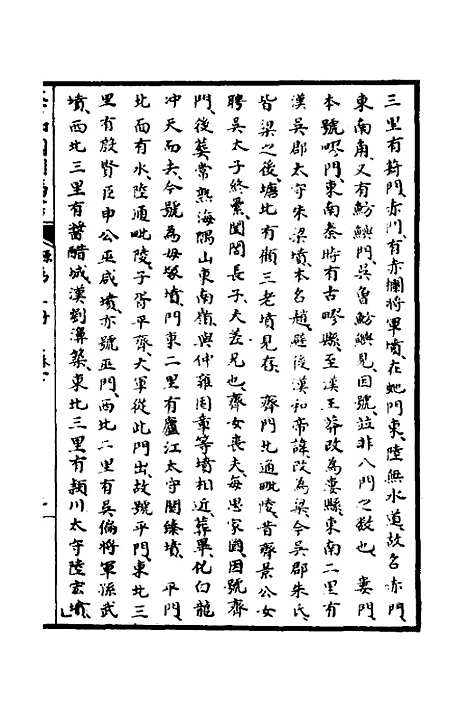 三里有葑門赤門有赤闌將軍墳在蛇門東陸無水道故名赤門
東南角又有魴鱮門吳魯魴鱮見因號竝非八門之數也　婁門
本號𤴁門東南秦時有古𤴁縣至漢王莽改為婁縣東南二里有
漢吳郡太守朱梁墳本名趙避後漢和帝諱改為梁今吳郡朱氏
皆梁之後塘北有顧三老墳見存　齊門北通毗陵昔齊景公女
聘吳太子終纍闔閭長子夫差兄也齊女喪夫每思家國因號齊
門後葬常熟海隅山東南嶺與仲雍周章等墳相近葬畢化白龍
冲天而去今號為母塚墳門東二里有廬江太守闞臻墳　平門
北面有水陸通毗陵子胥平齊大軍從此門出故號平門東北三
里有殷賢臣申公巫咸墳亦號巫門西北二里有吳偏將軍孫武
墳西北三里有醬醋城漢劉濞築東北三里有潁川太守陸宏墳